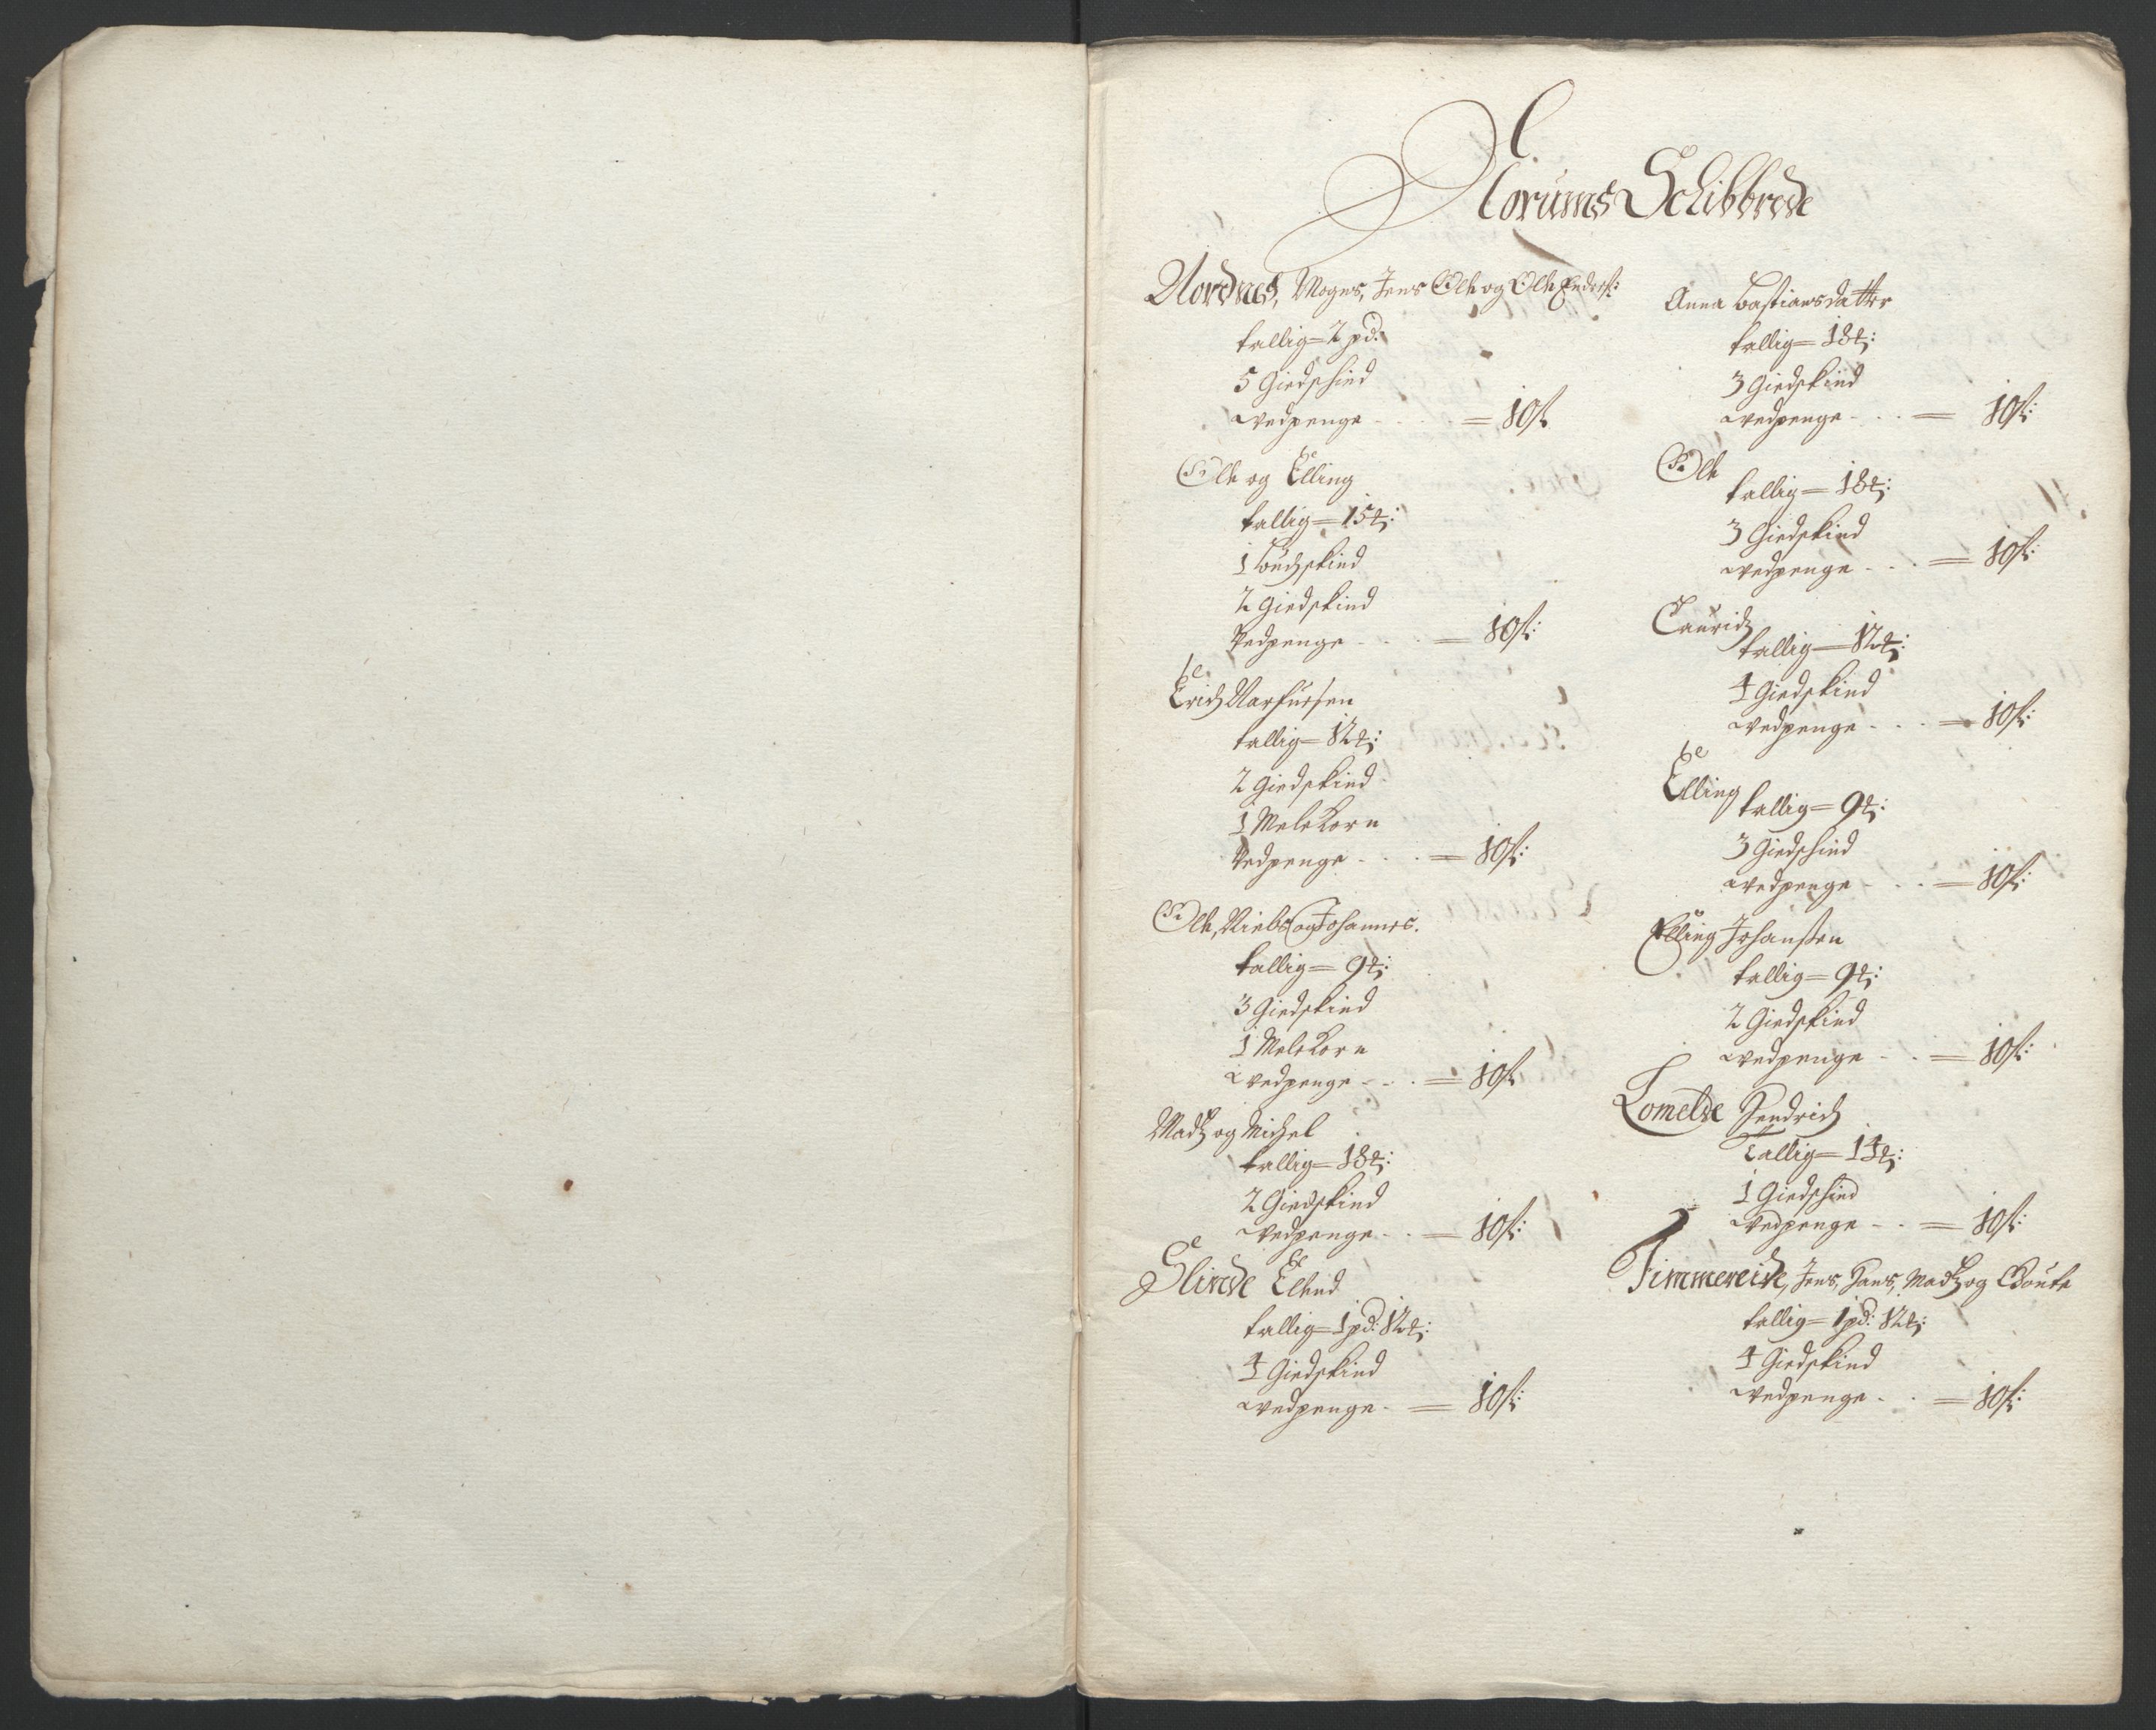 Norums Schibbrede
Nordnes, Mogns, Jens Ole og Ole Enders:
tallig = 2 pd:
5 Giedschind
wedpenge - . . = 10 s
Ole og Elling
tallig = 15 ℔:
1 buchskind
2 giedskind
Vedpenge - . . = 10 s:
Erich
tallig = 12 ℔:
2 giedskind
1 Mele Korn
Vedpenge - . . = 10 s:
Ole, Niels og Johannes.
tallig = 9 ℔:
3 giedskind
1 Mele Korn
wedpenge - . . = 10 s
Madtz og Michel
tallig = 18 ℔:
2 Giedskind
wedpenge - . = 10 s:
Slinde Ellend
tallig = 1 pd: 12 ℔:
4 Giedskind
wedpenge - = 10 s:
Anna Bastiansdatter
tallig = 18 ℔:
3 Giedskind
wedpenge - . . = 10 s:
Ole
tallig = 18 ℔:
3 Giedskind
wedpenge - . . = 10 s:
Lauridz
tallig = 12 ℔:
4 giedskind
wedpenge - . . = 10 s:
Elling
tallig = 9 ℔:
3 Giedschind
wedpenge - . . = 10 s:
Elling Johanßen
tallig = 9 ℔:
2 Giedskind
wedpenge - . = 10 s:
Lomelde Hendrich
Tallig = 14 ℔:
1 Giedschind
wedpenge - . = 10 s:
Timmereide, Jens, Hans, Madtz og Goute
tallig = 1 pd: 12 ℔:
4 Giedskind
wedpenge - . = 10 s: